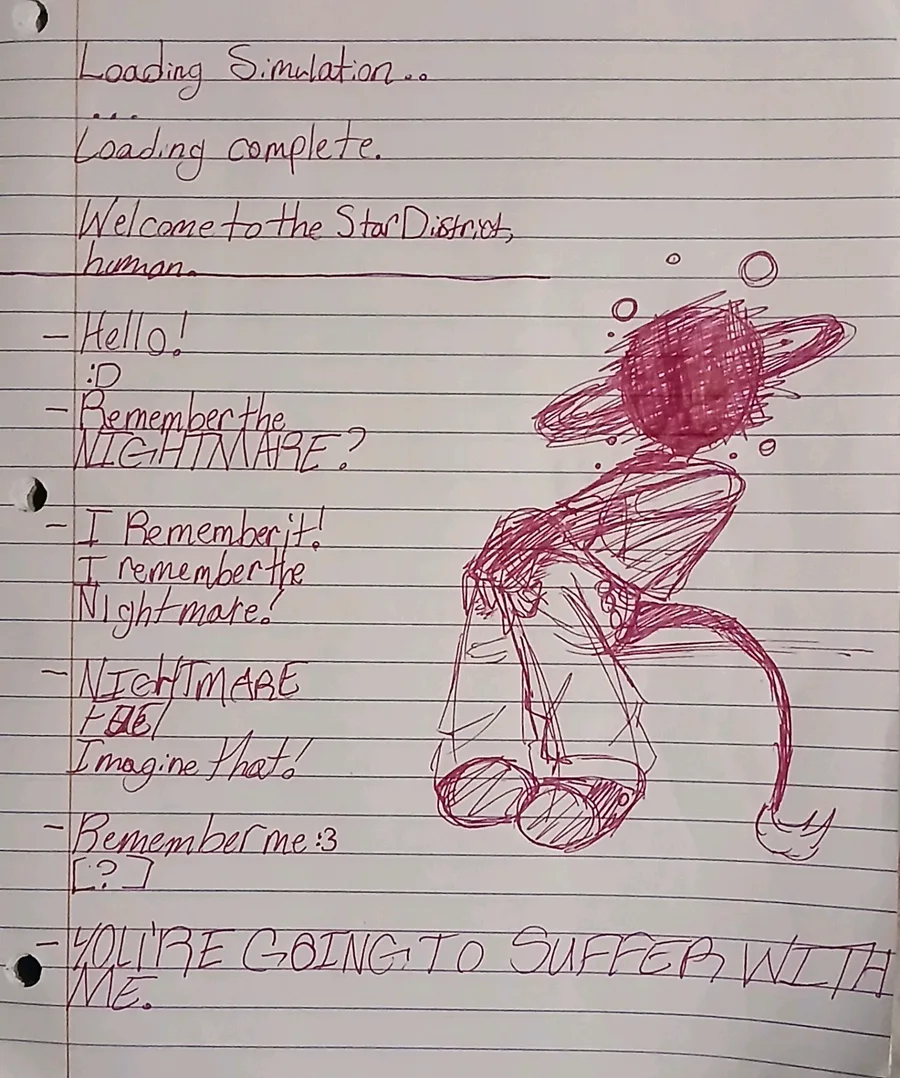 Loading Simulation..
...
Loading complete.
Welcome to the Star District,
human.
- Hello!
:D
- Remember the
NIGHTMARE?
- I Remember it!
I remember the
Nightmare!
- NIGHTMARE
Imagine that!
- Remember me :3
[?]
- YOU'RE GOING TO SUFFER WITH
ME.